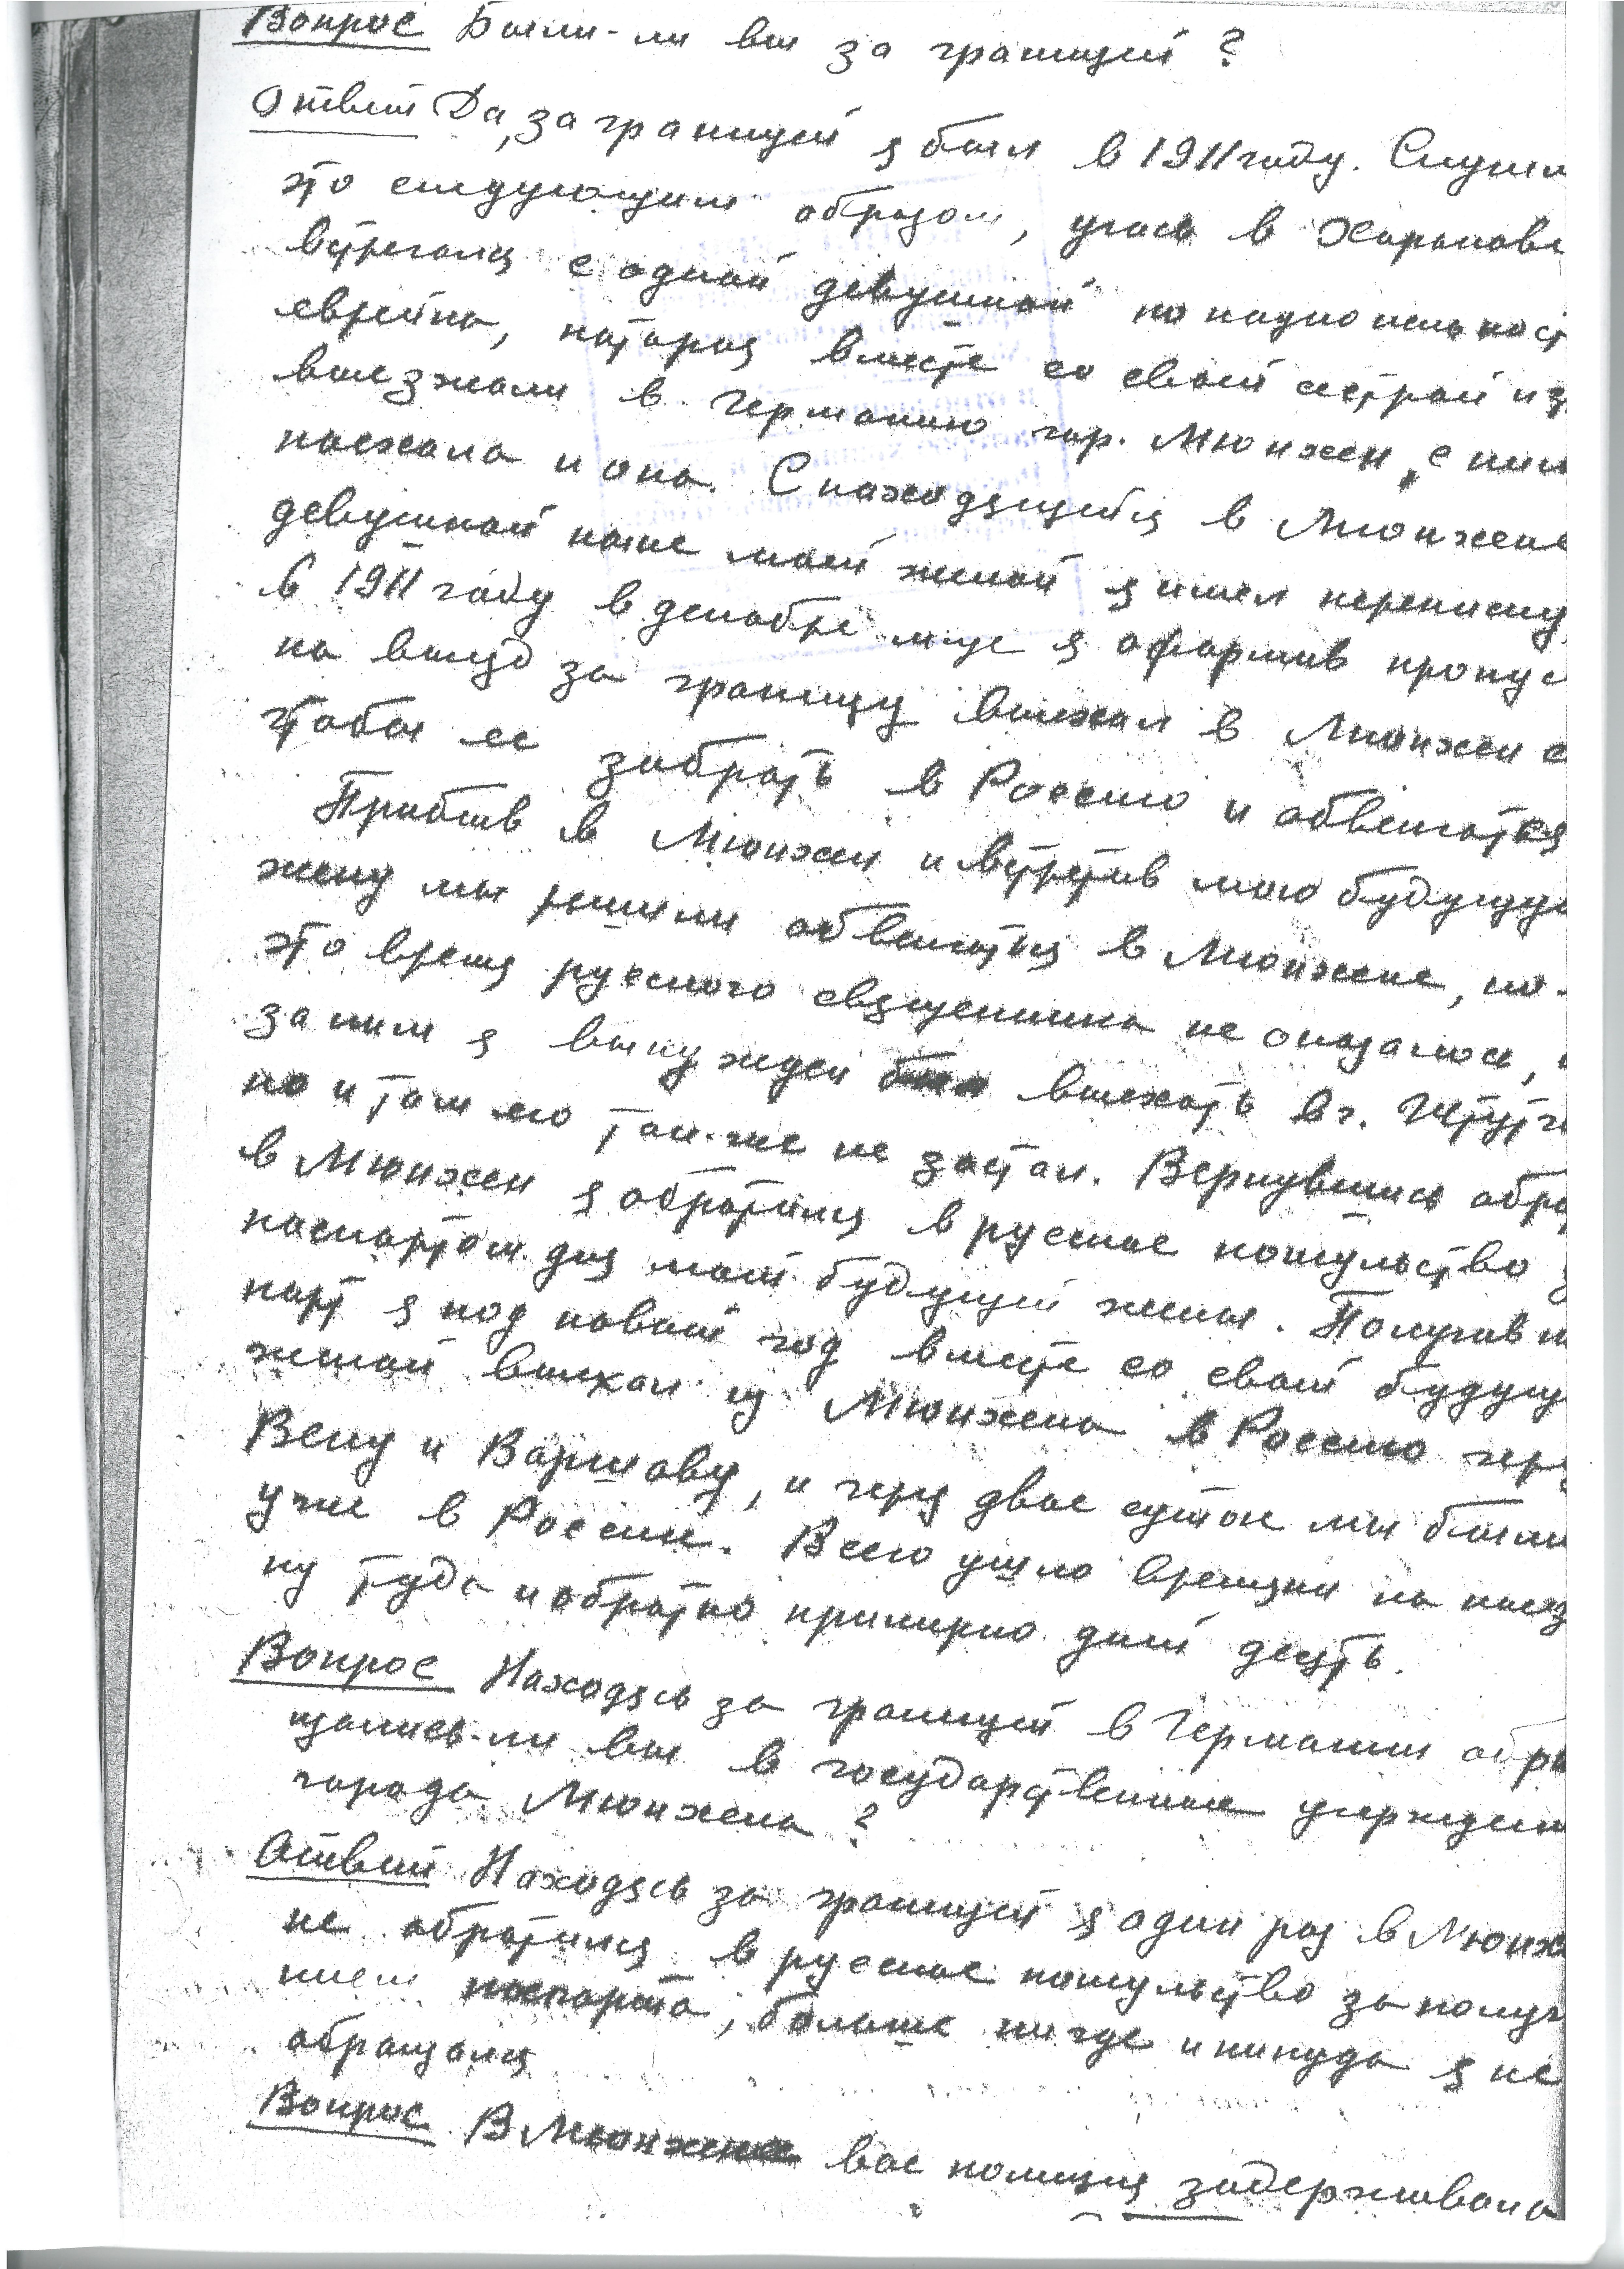 Вопрос Были-ли вы за границей?
Ответ Да, за границей я был в 1911 году. Случил
это следующим образом, учась в Харькове
встречался с одной девушкой по националност
еврейка, которая вместе со своей сестрой из
выезжали в Германию гор. Мюнхен, с ним
поехала и она. С находящейся в Мюнхене
девушкой ныне моей женой я имел переписку
в 1911 году в декабре м-це я оформив пропус
на выезд за границу выехал в Мюнхен с
чтобы ее забрать в Россию и обвенчаться
Прибыв в Мюнхен и встретив мою будущую
жену мы решили обвенчатся в Мюнхене, но
это время русского священника не оказалось,
за ним я вынужден был выехать в г. Штутг
но и там его так-же не застал. Вернувшись обра
в Мюнхен я обратился в русское консульство
паспортом для моей будущей жены. Получив п
порт я под новый год вместе со своей будущ
женой выехал из Мюнхена в Россию чере
Вену и Варшаву, и через двое суток мы были
уже в России. Всего ушло времяни на поезд
ку туда и обратно примерно дней десять.
Вопрос Находясь за границей в Германии обра
щались-ли вы в государственные учрежден
города Мюнхена?
Ответ Находясь за границей я один раз в Мюнх
не обратился в русское консульство за получ
нием паспорта, больше нигде и никуда я не
обращался
Вопрос В Мюнхене вас полиция задерживала